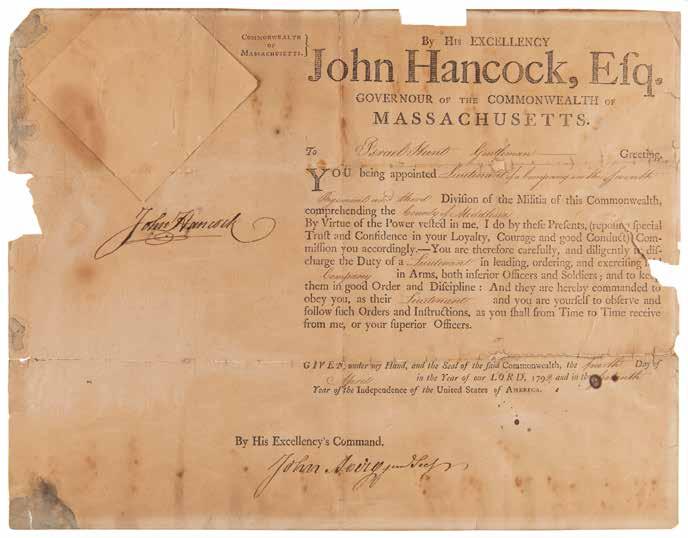 COMMONWEALTH
OF
MASSACHUSETTS.
BY HIS EXCELLENCY
John Hancock, Eſq.
GOVERNOUR OF THE COMMONWEALTH OF
MASSACHUSETTS.
To Israel Hunt Gentleman Greeting.
YOU being appointed Lieutenant of a Company in the Seventh
Regiment and third Diviſion of the Militia of this Commonwealth,
comprehending the County of Middlesex
By Virtue of the Power veſted in me, I do by theſe Preſents, (repoſing ſpecial
Truſt and Confidence in your Loyalty, Courage and good Conduct) Com-
miſſion you accordingly.—You are therefore carefully, and diligently to diſ-
charge the Duty of a Lieutenant in leading, ordering, and exerciſing
Company in Arms, both inferior Officers and Soldiers; and to keep
them in good Order and Diſcipline: And they are hereby commanded to
obey you, as their Lieutenant and you are yourſelf to obſerve and
follow ſuch Orders and Inſtructions, as you ſhall from Time to Time receive
from me, or your ſuperior Officers.
GIVEN, under my Hand, and the Seal of the ſaid Commonwealth, the fourth Day of
April in the Year of our LORD, 1792 and in the
Year of the Independence of the United States of AMERICA.
John Hancock
By His Excellency's Command.
John Avery jun Secy